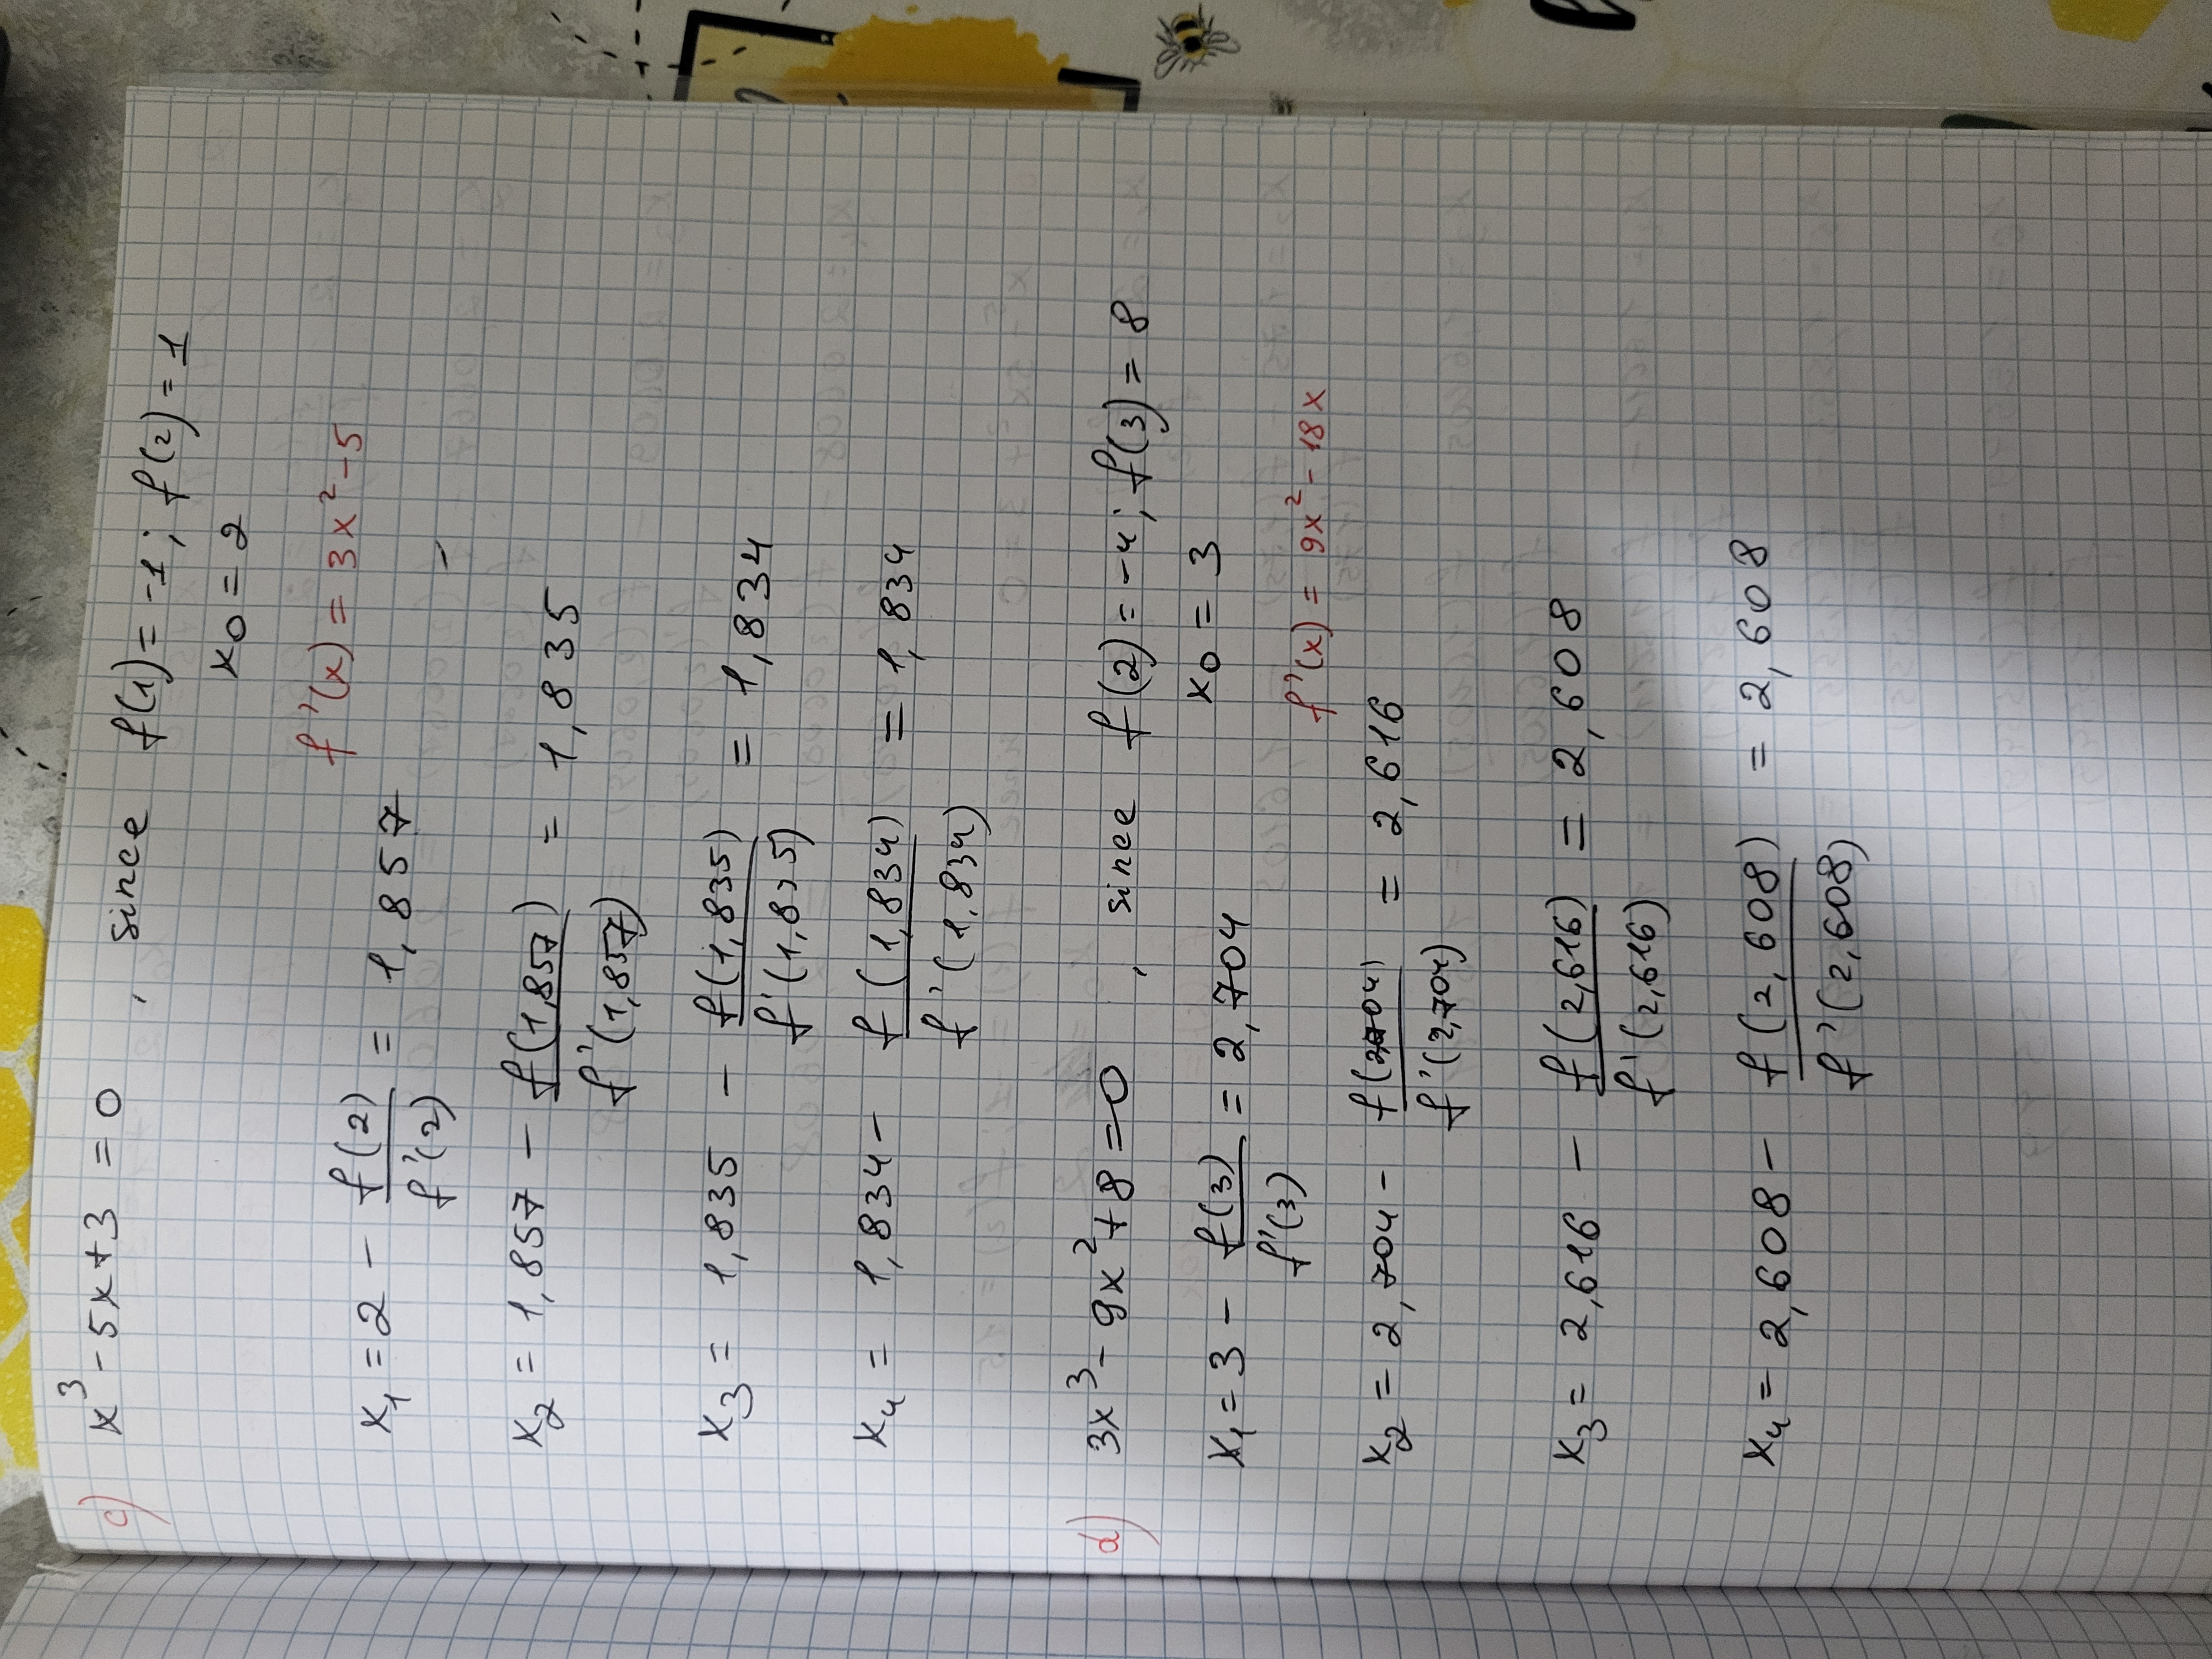 c) x³ - 5x + 3 = 0 , since f(1) = -1 ; f(2) = 1
x₀ = 2
f'(x) = 3x² - 5
x₁ = 2 - f(2)/f'(2) = 1,857
x₂ = 1,857 - f(1,857)/f'(1,857) = 1,835
x₃ = 1,835 - f(1,835)/f'(1,835) = 1,834
x₄ = 1,834 - f(1,834)/f'(1,834) = 1,834
d) 3x³ - 9x² + 8 = 0 , since f(2) = -4 ; f(3) = 8
x₀ = 3
x₁ = 3 - f(3)/f'(3) = 2,704
f'(x) = 9x² - 18x
x₂ = 2,704 - f(2,704)/f'(2,704) = 2,616
x₃ = 2,616 - f(2,616)/f'(2,616) = 2,608
x₄ = 2,608 - f(2,608)/f'(2,608) = 2,608